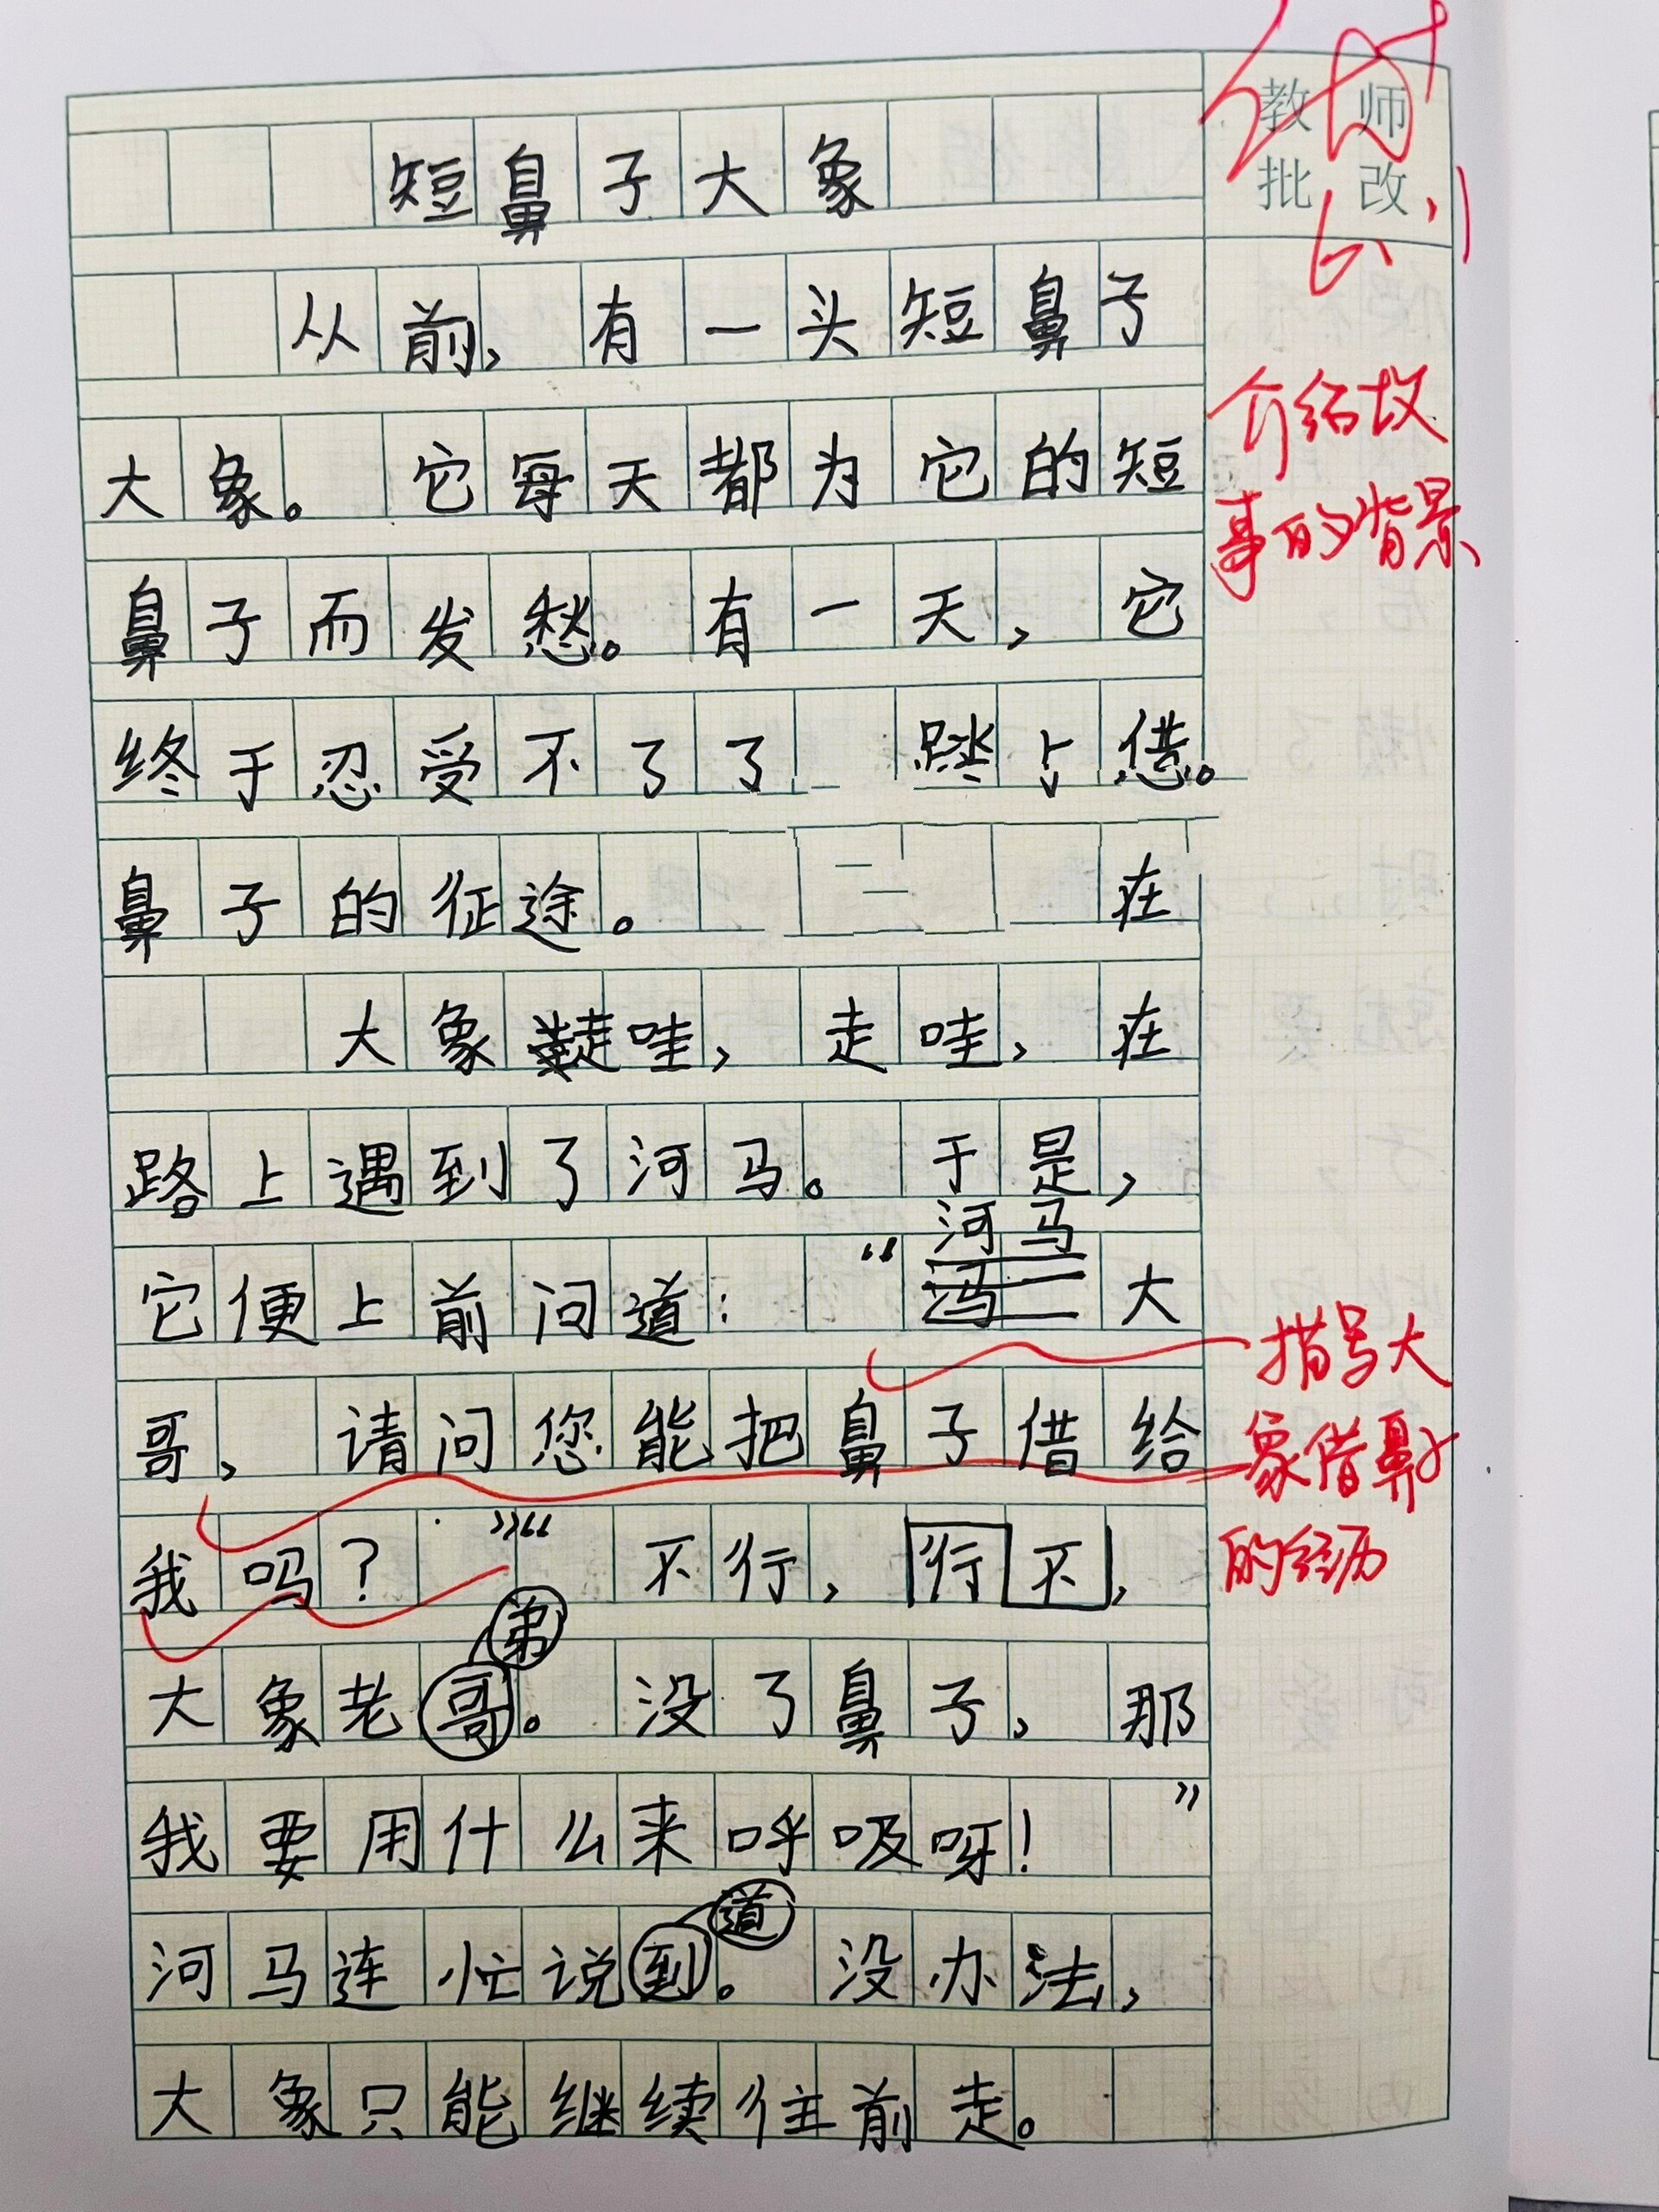 短鼻子大象
从前，有一头短鼻子
大象。它每天都为它的短
鼻子而发愁。有一天，它
终于忍受不了了 踏上借。
鼻子的征途。 在
大象走哇，走哇，在
路上遇到了河马。于是，
河马
它便上前问道：“ 大
哥，请问您能把鼻子借给
我吗？”“不行，行不，
弟
大象老哥。没了鼻子，那
我要用什么来呼吸呀！”
道
河马连忙说到。没办法，
大象只能继续往前走。
教师
批改
6.11
介绍故
事的背景
描写大
象借鼻子
的经历